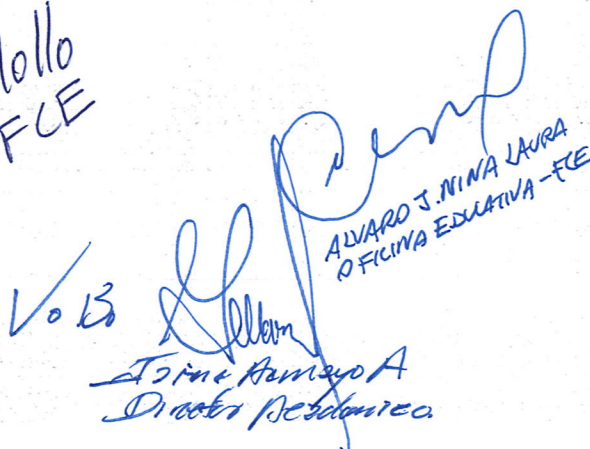 lollo
FCE
ALVARO J. NINA LAURA
OFICINA EDUCATIVA - FCE
Vo Bo
Jaime Armayo A
Director Académico